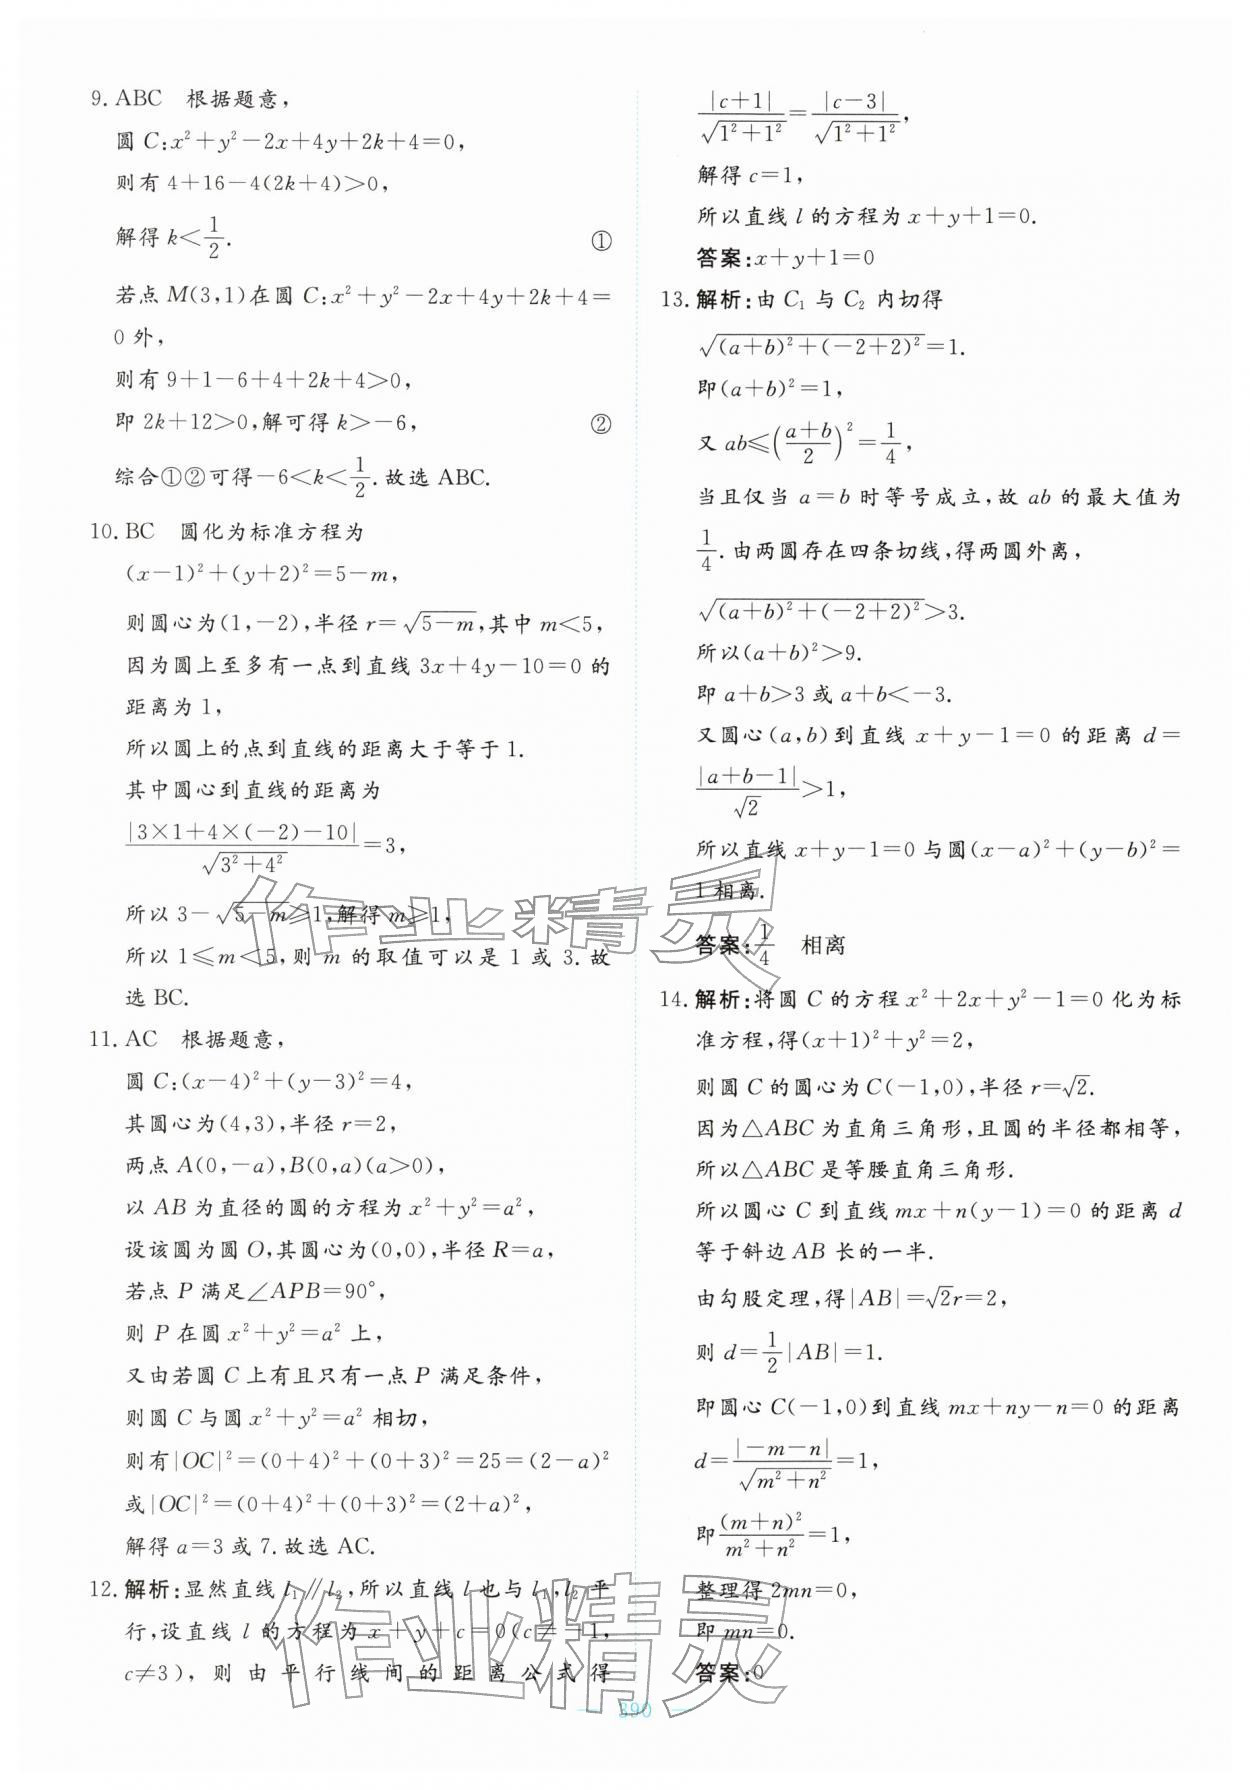 9. ABC 根据题意,
圆 C:x²+y²-2x+4y+2k+4=0,
则有 4+16-4(2k+4)>0,
解得 k<1/2. ①
若点 M(3,1)在圆 C:x²+y²-2x+4y+2k+4=
0 外,
则有 9+1-6+4+2k+4>0,
即 2k+12>0,解可得 k>-6, ②
综合①②可得-6<k<1/2.故选 ABC.
10. BC 圆化为标准方程为
(x-1)²+(y+2)²=5-m,
则圆心为(1,-2),半径 r=√(5-m),其中 m<5,
因为圆上至多有一点到直线 3x+4y-10=0 的
距离为 1,
所以圆上的点到直线的距离大于等于 1.
其中圆心到直线的距离为
|3×1+4×(-2)-10|/√(3²+4²)=3,
所以 3-√(5-m)≥1,解得 m≥1,
所以 1≤m<5,则 m 的取值可以是 1 或 3.故
选 BC.
11. AC 根据题意,
圆 C:(x-4)²+(y-3)²=4,
其圆心为(4,3),半径 r=2,
两点 A(0,-a),B(0,a)(a>0),
以 AB 为直径的圆的方程为 x²+y²=a²,
设该圆为圆 O,其圆心为(0,0),半径 R=a,
若点 P 满足∠APB=90°,
则 P 在圆 x²+y²=a² 上,
又由若圆 C 上有且只有一点 P 满足条件,
则圆 C 与圆 x²+y²=a² 相切,
则有|OC|²=(0+4)²+(0+3)²=25=(2-a)²
或|OC|²=(0+4)²+(0+3)²=(2+a)²,
解得 a=3 或 7.故选 AC.
12. 解析:显然直线 l₁∥l₂,所以直线 l 也与 l₁,l₂ 平
行,设直线 l 的方程为 x+y+c=0(c≠-1,
c≠3),则由平行线间的距离公式得
|c+1|/√(1²+1²)=|c-3|/√(1²+1²),
解得 c=1,
所以直线 l 的方程为 x+y+1=0.
答案:x+y+1=0
13. 解析:由 C₁ 与 C₂ 内切得
√((a+b)²+(-2+2)²)=1.
即(a+b)²=1,
又 ab≤((a+b)/2)²=1/4,
当且仅当 a=b 时等号成立,故 ab 的最大值为
1/4.由两圆存在四条切线,得两圆外离,
√((a+b)²+(-2+2)²)>3.
所以(a+b)²>9.
即 a+b>3 或 a+b<-3.
又圆心(a,b)到直线 x+y-1=0 的距离 d=
|a+b-1|/√2>1,
所以直线 x+y-1=0 与圆(x-a)²+(y-b)²=
1 相离.
答案:1/4 相离
14. 解析:将圆 C 的方程 x²+2x+y²-1=0 化为标
准方程,得(x+1)²+y²=2,
则圆 C 的圆心为 C(-1,0),半径 r=√2.
因为△ABC 为直角三角形,且圆的半径都相等,
所以△ABC 是等腰直角三角形.
所以圆心 C 到直线 mx+n(y-1)=0 的距离 d
等于斜边 AB 长的一半.
由勾股定理,得|AB|=√2r=2,
则 d=1/2|AB|=1.
即圆心 C(-1,0)到直线 mx+ny-n=0 的距离
d=|-m-n|/√(m²+n²)=1,
即(m+n)²/(m²+n²)=1,
整理得 2mn=0,
即 mn=0.
答案:0
作业精灵
作业精灵
— 290 —